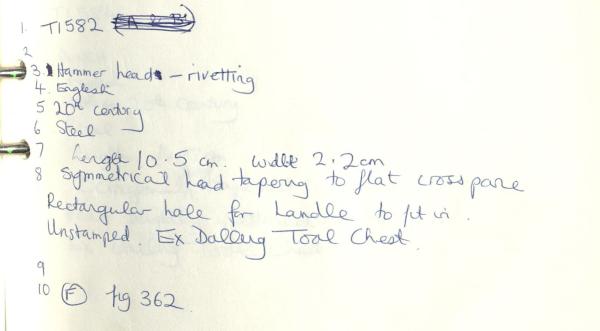 1. T1582 (A & B)
2
3. Hammer head - rivetting
4. English
5 20th century
6 Steel
7 Length 10.5 cm. width 2.2cm
8 Symmetrical head tapering to flat cross pane
Rectangular hole for handle to fit in.
Unstamped. Ex Dalling Tool Chest.
9
10 (F) fig 362.